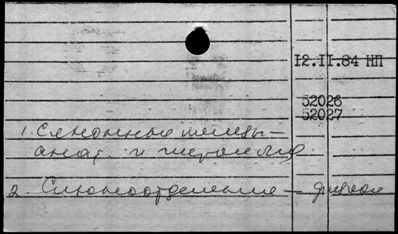 12.II.84 НП
52026
52027
1. Слюнные железы –
анат. и гистология
2. Слюноотделение – физиол